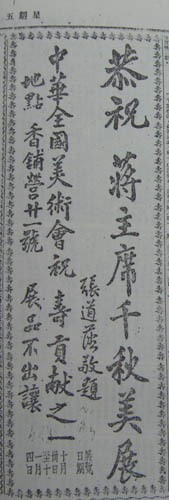 星期五
恭祝 蔣主席千秋美展
張道藩敬題
中華全國美術會祝 壽貢獻之一
地點 香鋪營廿一號 展品不出讓
展覽日期
十月 日至十一月四日